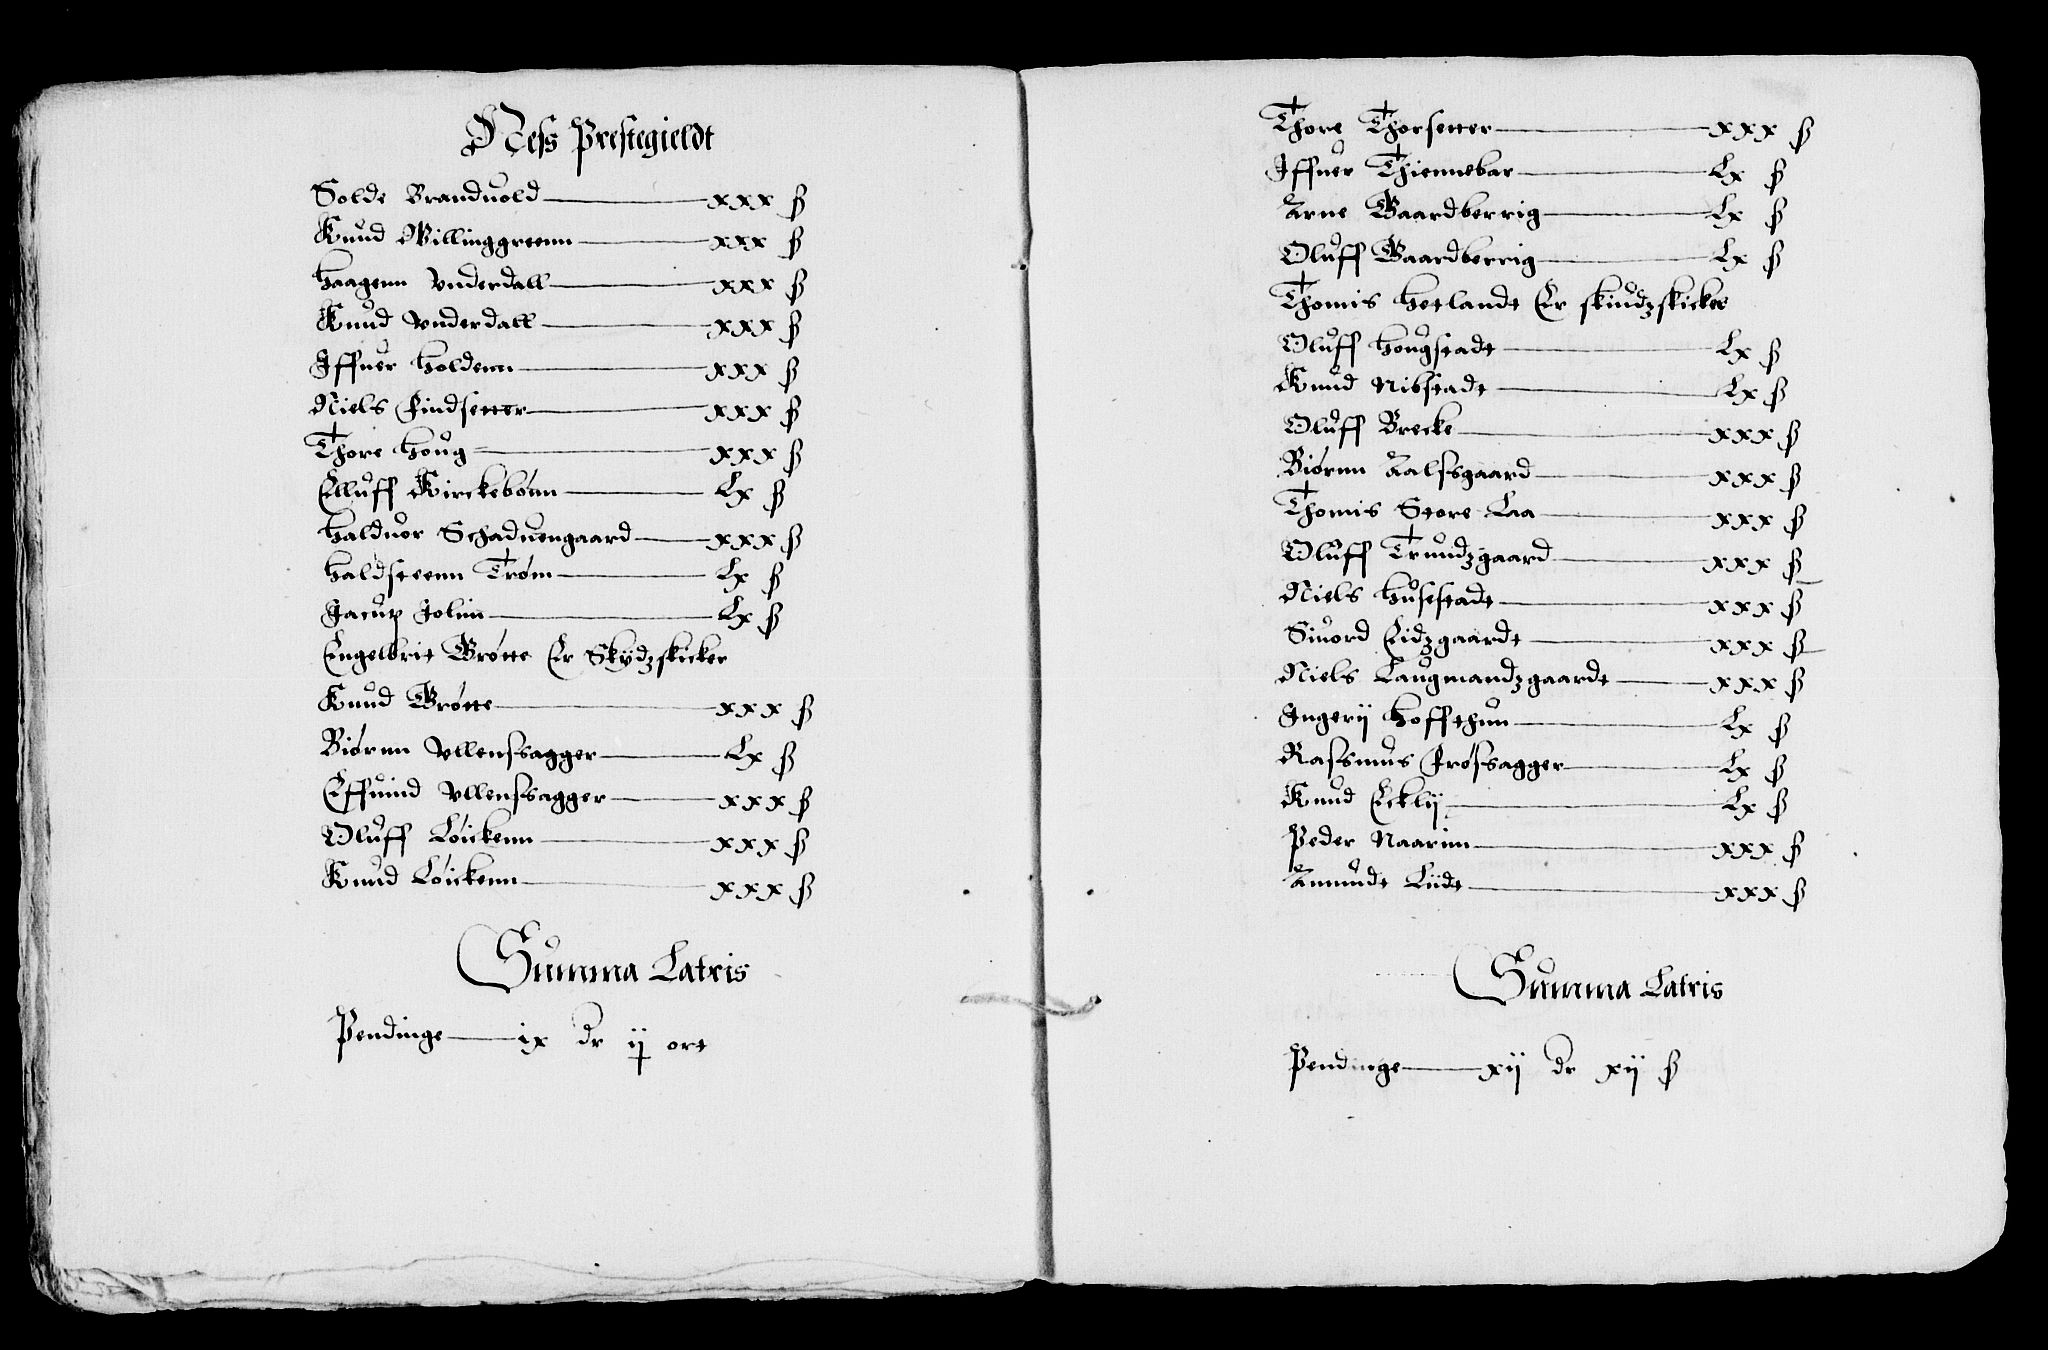 Ness Prestegieldt
Solde Branduold xxx ß
Knud Willinggreenn xxx ß
Haagenn Vnderdall xxx ß
Knud Vnderdall xxx ß
Iffuer Holdenn xxx ß
Niels Findsetter xxx ß
Thore Houg xxx ß
Elluff Kirckebönn Lx ß
Halduor Schaduengaard xxx ß
Haldsteenn Tröm Lx ß
Jacup Jolin Lx ß
Engelbrit Brötte Er Skydzskicker
Knud Brötte xxx ß
Biörnn Vllenssagger Lx ß
Effuind Vllenssagger xxx ß
Oluff Löickenn xxx ß
Knud Löickenn xxx ß
Summa Latris
Pendinge ix dr ij ort
Thore Thorsetter xxx ß
Iffuer Thiennebar Lx ß
Arne Gaardberrig Lx ß
Oluff Gaardberrig Lx ß
Thomis Hetlandt Er skiudzskicker
Oluff Hougstadt Lx ß
Knud Nibstadt Lx ß
Oluff Brecke xxx ß
Biörnn Aalssgaard xxx ß
Thomis Store Laa xxx ß
Oluff Trundzgaard xxx ß
Niels Husestadt xxx ß
Siuord Eidzgaardt xxx ß
Niels Laugmandzgaardt xxx ß
Ingerij Hoffthun Lx ß
Rassmus Frössagger Lx ß
Knud Ecklij Lx ß
Peder Naarim xxx ß
Amundt Liidt xxx ß
Summa Latris
Pendinge xij dr xij ß